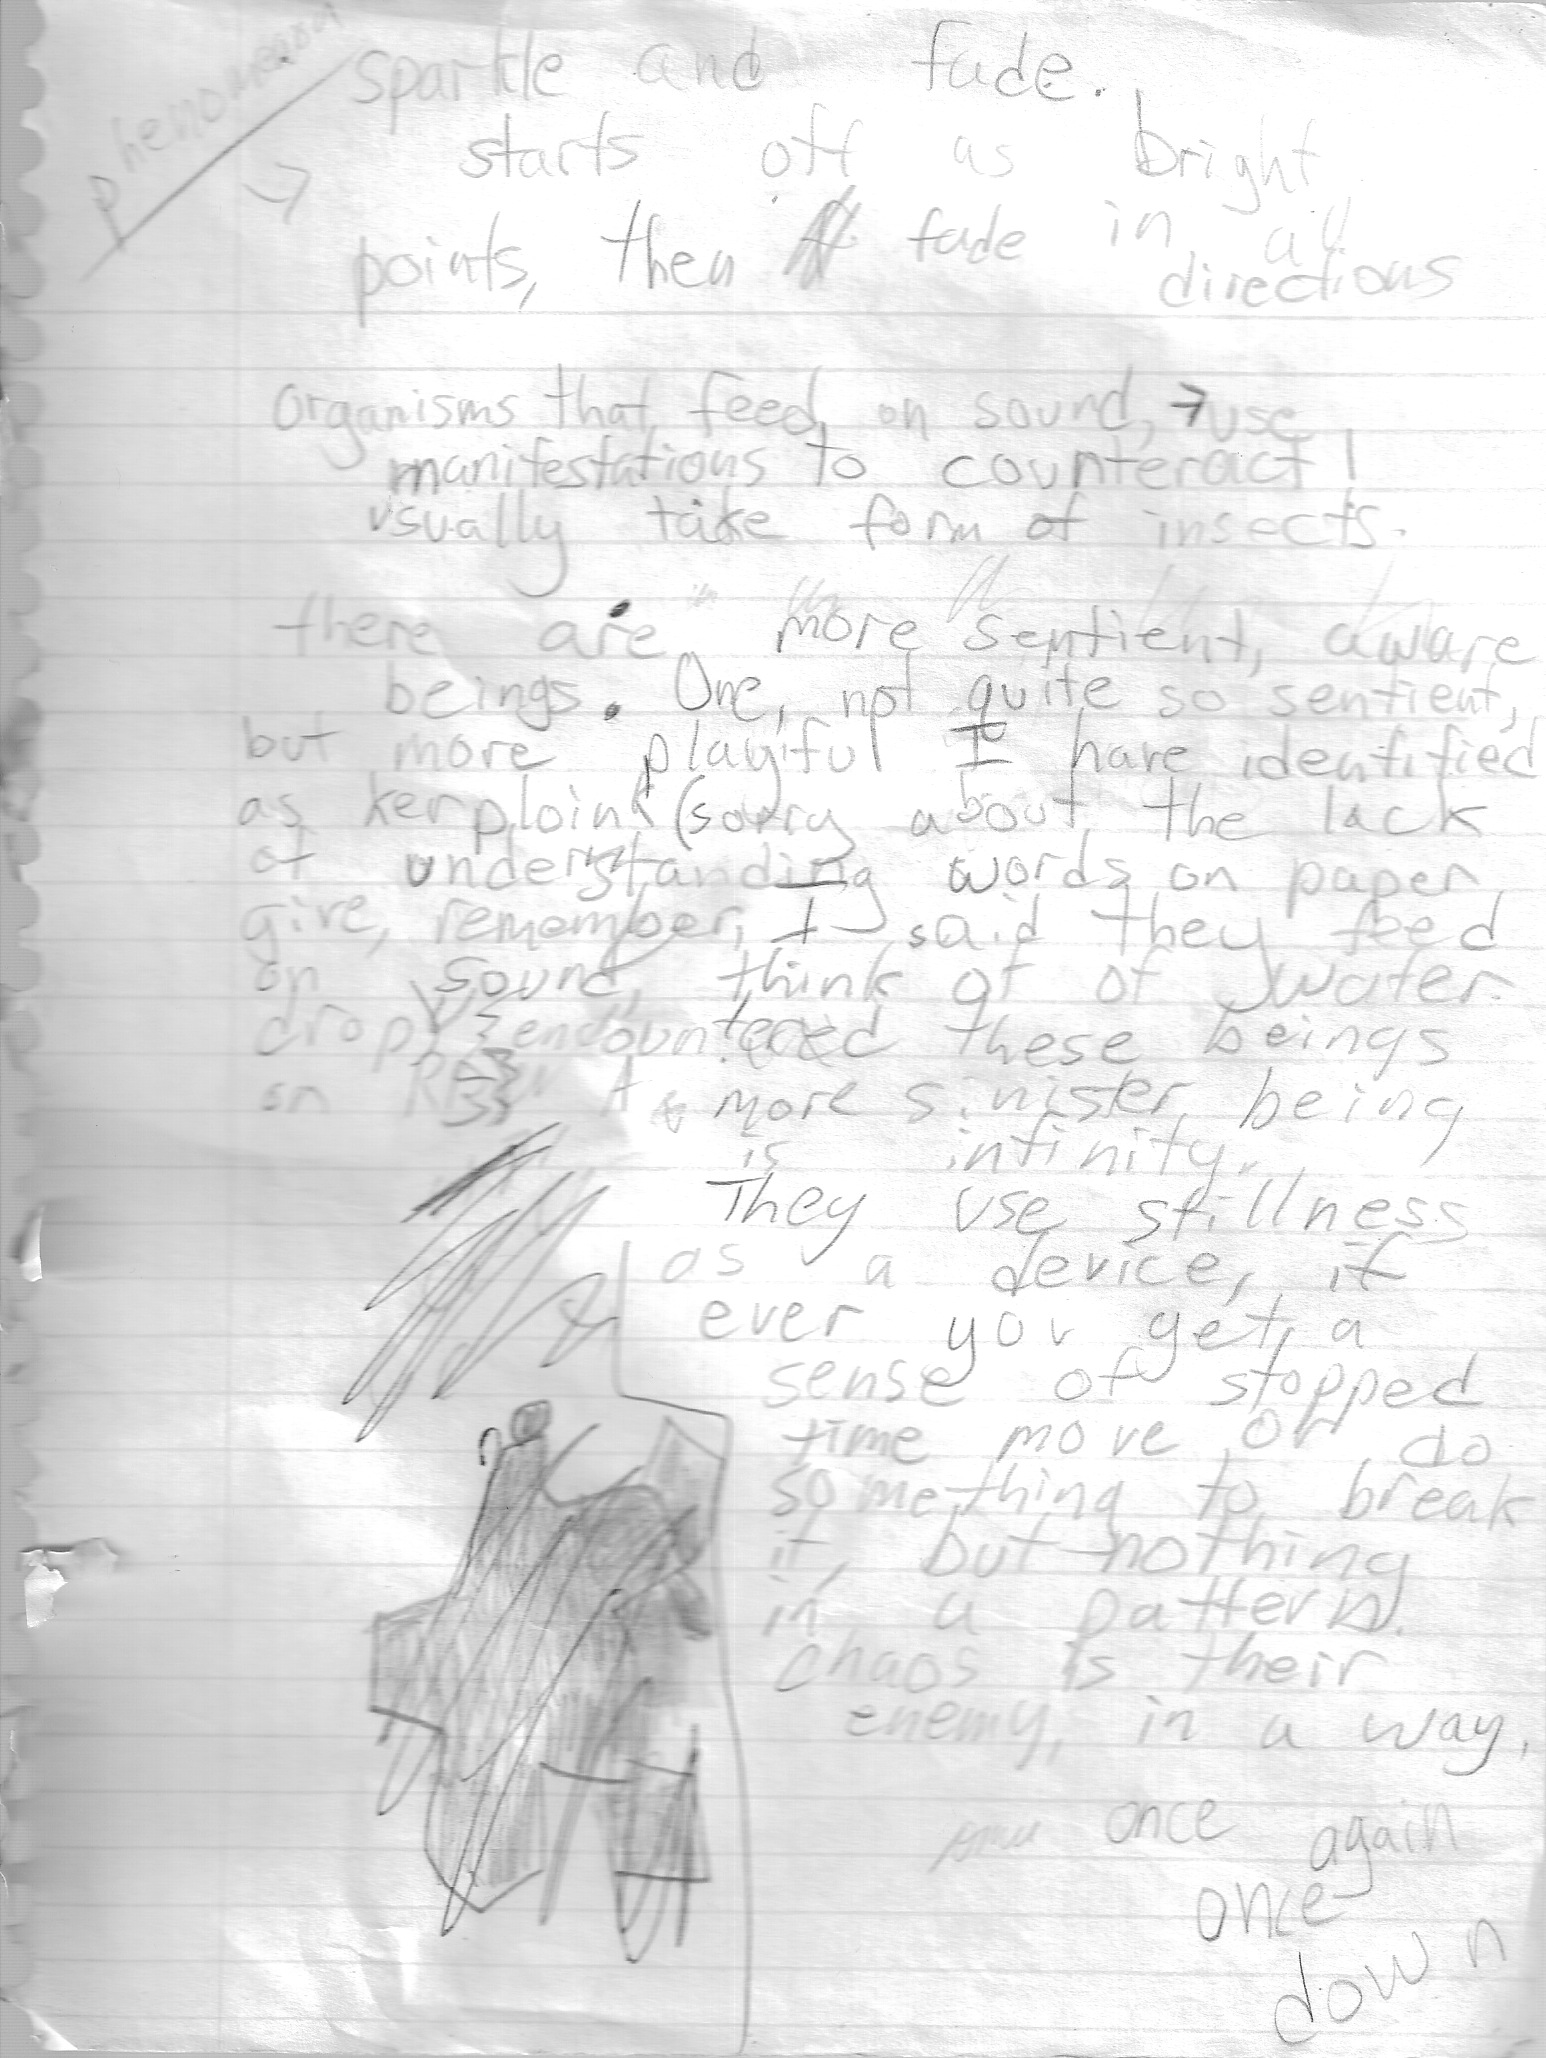 phenomenon
sparkle and fade.
starts off as bright
points, then fade in all
directions
organisms that feed on sound, → use
manifestations to counteract!
usually take form of insects.
there are more sentient, aware
beings. One, not quite so sentient,
but more playful I have identified
as kerploink (sorry about the lack
of understanding words on paper
give, remember, I said they feed
on sound, think of of water
drop) encountered these beings
on A more sinister being
is infinity.
They use stillness
as a device, if
ever you get a
sense of stopped
time move or do
something to break
it, but nothing
in a pattern.
chaos is their
enemy, in a way.
once again
once
down